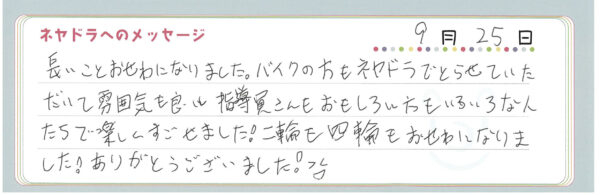 ネヤドラへのメッセージ 9月25日
長いことおせわになりました。バイクの方もネヤドラでとらせていた
だいて雰囲気も良い 指導員さんもおもしろい方もいろいろな人
たちで楽しくすごせました!二輪も四輪もおせわになりま
した!ありがとうございました!